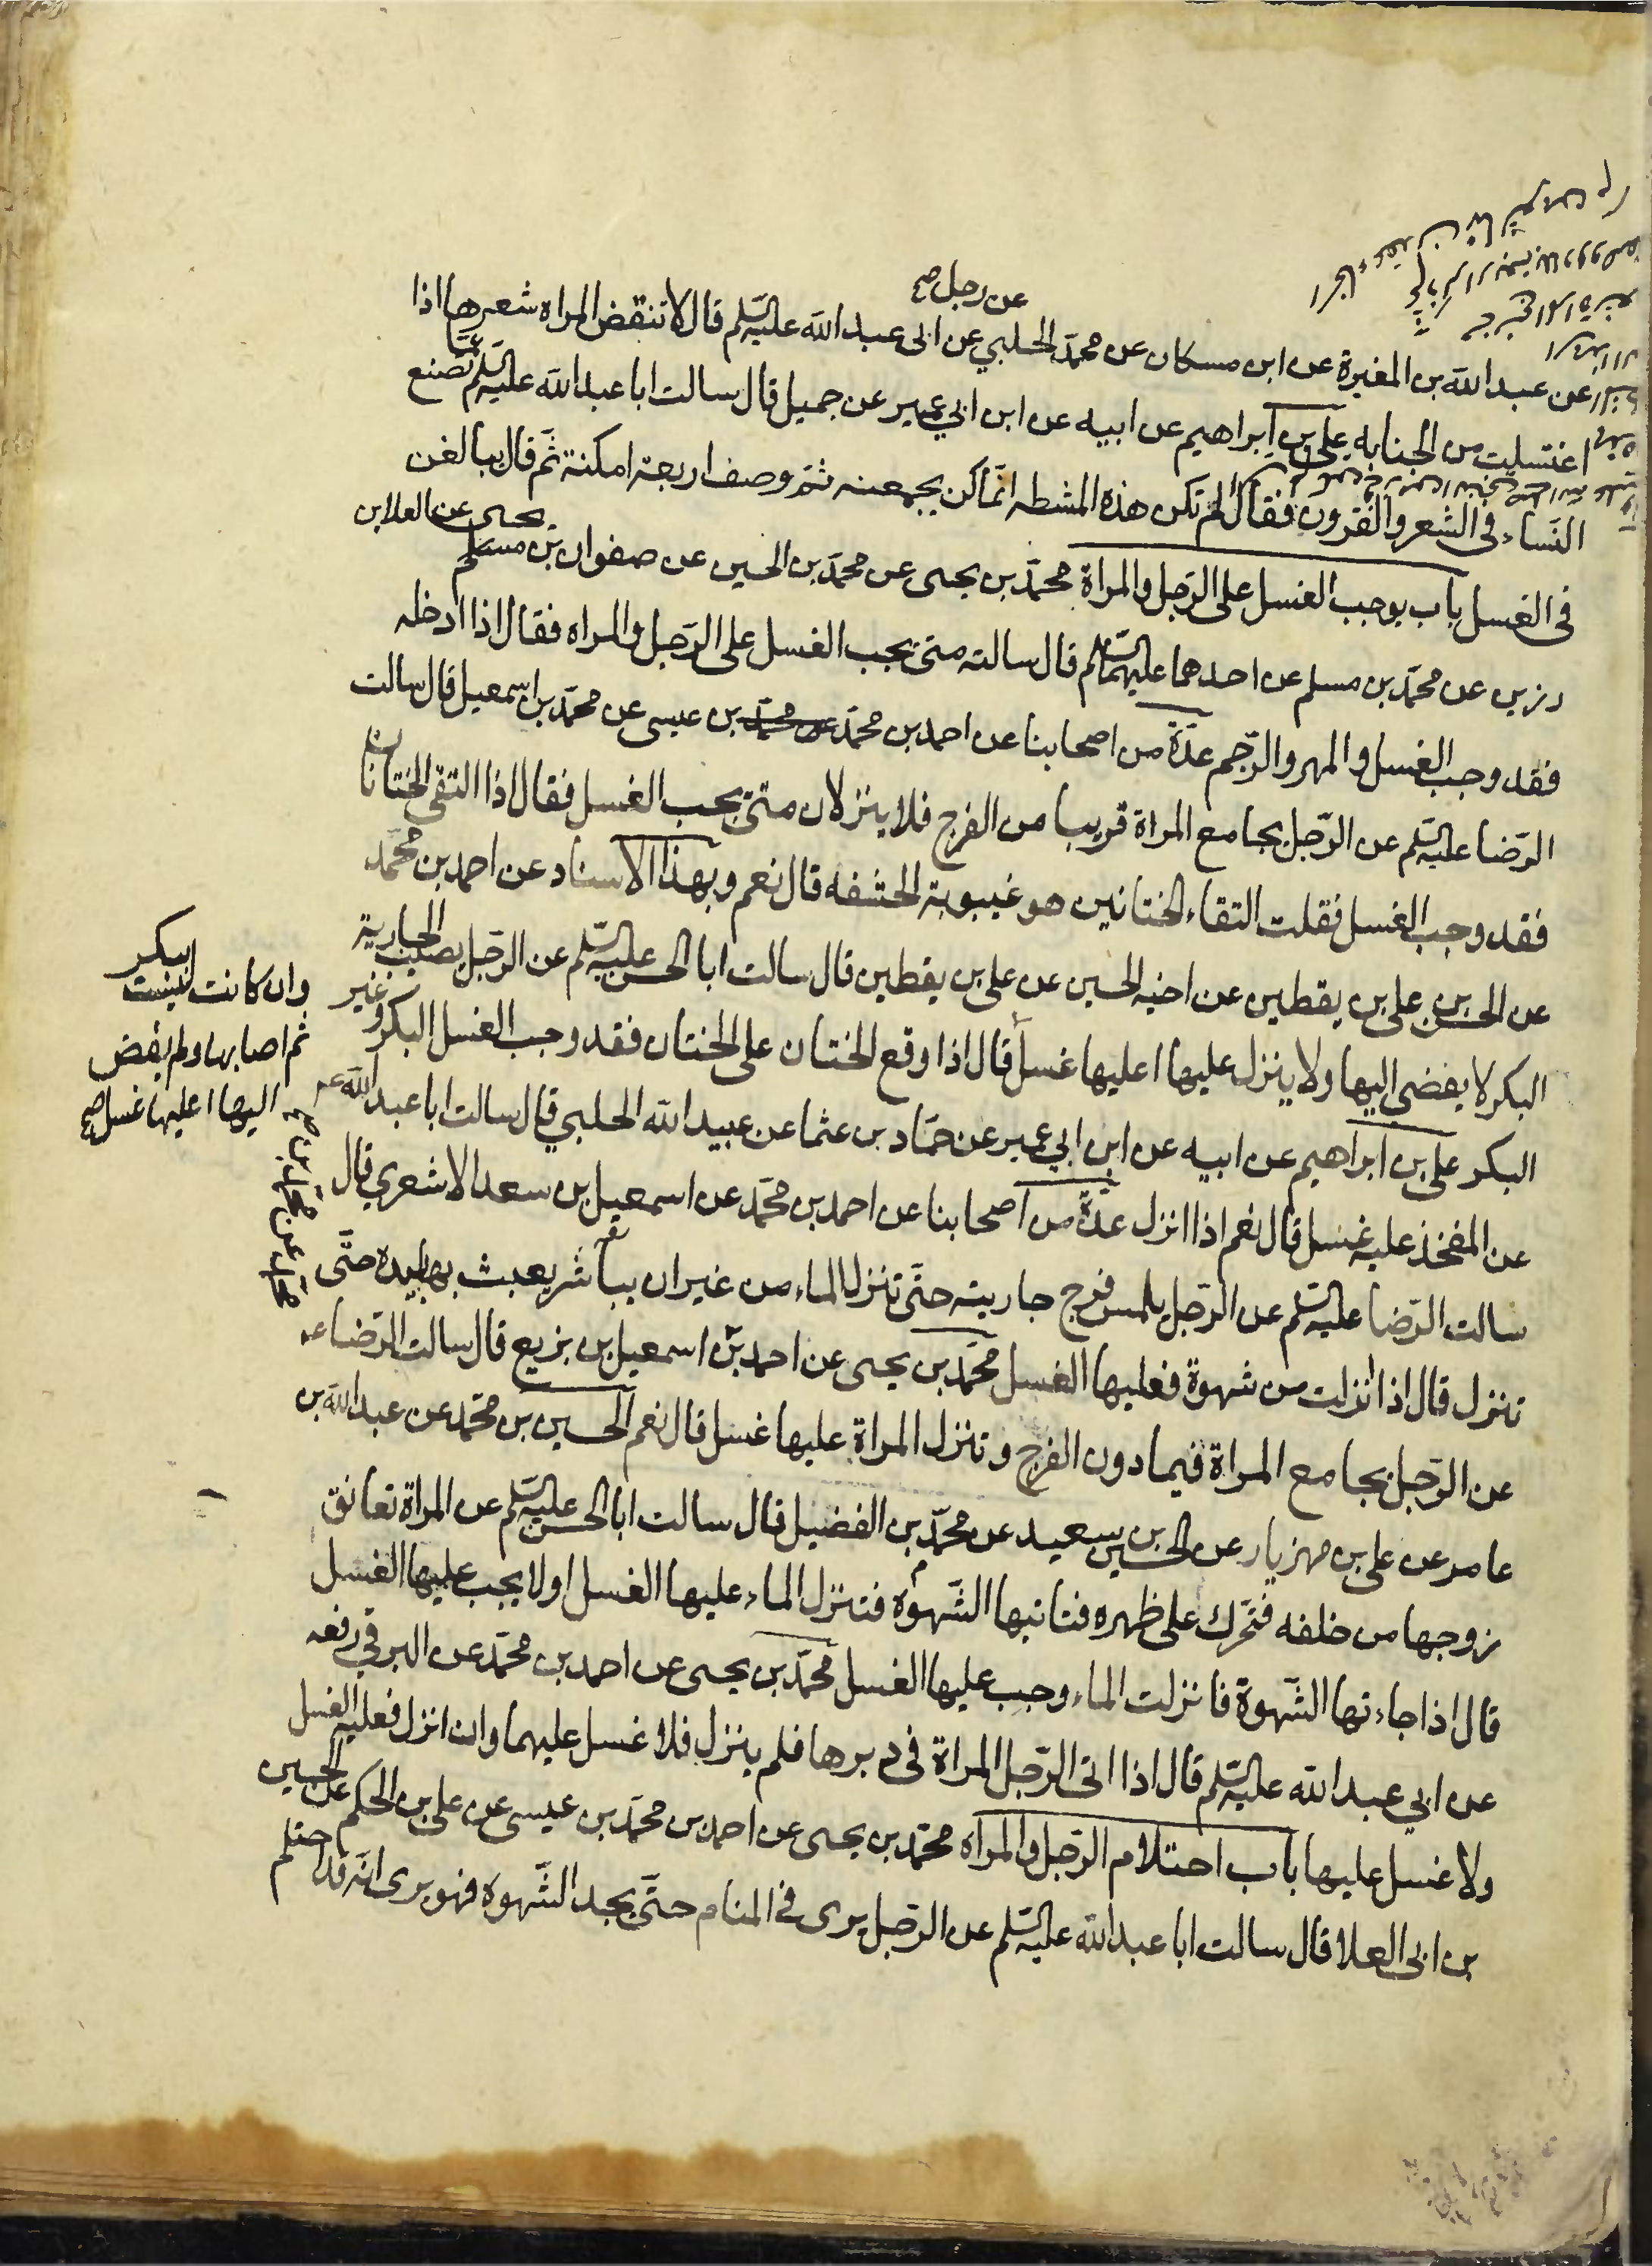 عن رجل صح
عن عبد الله بن المغيرة عن ابن مسكان عن محمد الحلبي عن ابى عبد الله عليه السلم قال لا تنقض المراه شعرها اذا
اغتسلت من الجنابه علي بن ابراهيم عن ابيه عن ابن ابي عمير عن جميل قال سالت ابا عبد الله عليه السلم عما تصنع
النساء في الشعر والقرون فقال لم تكن هذه المشطه انما كن يجمعنه ثم وصف اربعة امكنة ثم قال يبالغن
في الغسل باب يوجب الغسل على الرجل والمراة محمد بن يحيى عن محمد بن الحسين عن صفوان بن يحيى عن العلا بن
رزين عن محمد بن مسلم عن احدهما عليهما السلم قال سالته متى يجب الغسل على الرجل والمراه فقال اذا ادخله
فقد وجب الغسل والمهر والرجم عدة من اصحابنا عن احمد بن محمد عن محمد بن عيسى عن محمد بن اسمعيل قال سالت
الرضا عليه السلم عن الرجل يجامع المراة قريبا من الفرج فلا ينزلان متى يجب الغسل فقال اذا التقى الختانان
فقد وجب الغسل فقلت التقاء الختانين هو غيبوبة الحشفه قال نعم وبهذا الاسناد عن احمد بن محمد
عن الحسن بن علي بن يقطين عن اخيه الحسين عن علي بن يقطين قال سالت ابا الحسن عليه السلم عن الرجل يصيب الجارية
البكر لا يفضى اليها ولا ينزل عليها اعليها غسل قال اذا وقع الختان على الختان فقد وجب الغسل البكر وغير
البكر علي بن ابراهيم عن ابيه عن ابن ابي عمير عن حماد بن عثما عن عبيد الله الحلبي قال سالت ابا عبد الله ع
عن المفخذ عليه غسل قال نعم اذا انزل عدة من اصحابنا عن احمد بن محمد عن اسمعيل بن سعد الاشعري قال
سالت الرضا عليه السلم عن الرجل يلمس فرج جاريته حتى تنزل الماء من غير ان يباشر يعبث بها بيده حتى
تنزل قال اذا انزلت من شهوة فعليها الغسل محمد بن يحيى عن احمد بن اسمعيل بن بزيع قال سالت الرضا ع
عن الرجل يجامع المراة فيما دون الفرج وتنزل المراة عليها غسل قال نعم الحسين بن محمد عن عبد الله بن
عامر عن علي بن مهزيار عن الحسين بن سعيد عن محمد بن الفضيل قال سالت ابا الحسن عليه السلم عن المراة تعانق
زوجها من خلفه فتحرك على ظهره فتاتيها الشهوة فتنزل الماء عليها الغسل او لا يجب عليها الغسل
قال اذا جاءتها الشهوة فانزلت الماء وجب عليها الغسل محمد بن يحيى عن احمد بن محمد عن البرقي رفعه
عن ابي عبد الله عليه السلم قال اذا اتى الرجل المراة في دبرها فلم ينزل فلا غسل عليهما وان انزل فعليه الغسل
ولا غسل عليها باب احتلام الرجل والمراه محمد بن يحيى عن احمد بن محمد بن عيسى عن علي بن الحكم عن الحسين
بن ابى العلا قال سالت ابا عبد الله عليه السلم عن الرجل يرى في المنام حتى يجد الشهوه فهو يرى انه قد احتلم
وان كانت ليست ببكر
ثم اصابها ولم يفض
اليها اعليها غسل صح
محمد عن محمد بن صح